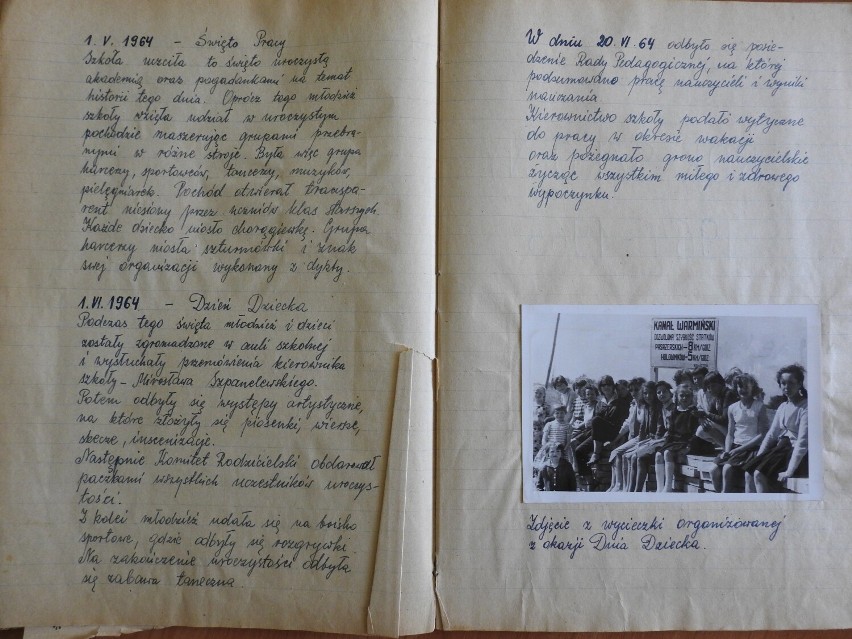 1. V. 1964 – Święto Pracy
Szkoła uczciła to święto uroczystą
akademią oraz pogadankami na temat
historii tego dnia. Oprócz tego młodzież
szkoły wzięła udział w uroczystym
pochodzie maszerując grupami przebra-
nymi w różne stroje. Była więc grupa
harcerzy, sportowców, tancerzy, muzyków,
pielęgniarek. Pochód otwierał transpa-
rent niesiony przez uczniów klas starszych.
Każde dziecko niosło chorągiewkę. Grupa
harcerzy niosła szturmówki i znak
swej organizacji wykonany z dykty.
1. VI. 1964 – Dzień Dziecka
Podczas tego święta młodzież i dzieci
zostały zgromadzone w auli szkolnej
i wysłuchały przemówienia kierownika
szkoły – Mirosława Szpanelewskiego.
Potem odbyły się występy artystyczne,
na które złożyły się piosenki, wiersze,
skecze, inscenizacje.
Następnie Komitet Rodzicielski obdarował
paczkami wszystkich uczestników uroczys-
tości.
Z kolei młodzież udała się na boisko
sportowe, gdzie odbyły się rozgrywki.
Na zakończenie uroczystości odbyła
się zabawa taneczna.
W dniu 20. VI. 64 odbyło się posie-
dzenie Rady Pedagogicznej, na której
podsumowano pracę nauczycieli i wyniki
nauczania.
Kierownictwo szkoły podało wytyczne
do pracy w okresie wakacji
oraz pożegnało grono nauczycielskie
życząc wszystkim miłego i zdrowego
wypoczynku.
KANAŁ WARMIŃSKI
DOZWOLONA SZYBKOŚĆ STATKÓW
PASAŻERSKICH – 8 KM/GODZ.
HOLOWNIKÓW – 5 KM/GODZ.
Zdjęcie z wycieczki organizowanej
z okazji Dnia Dziecka.